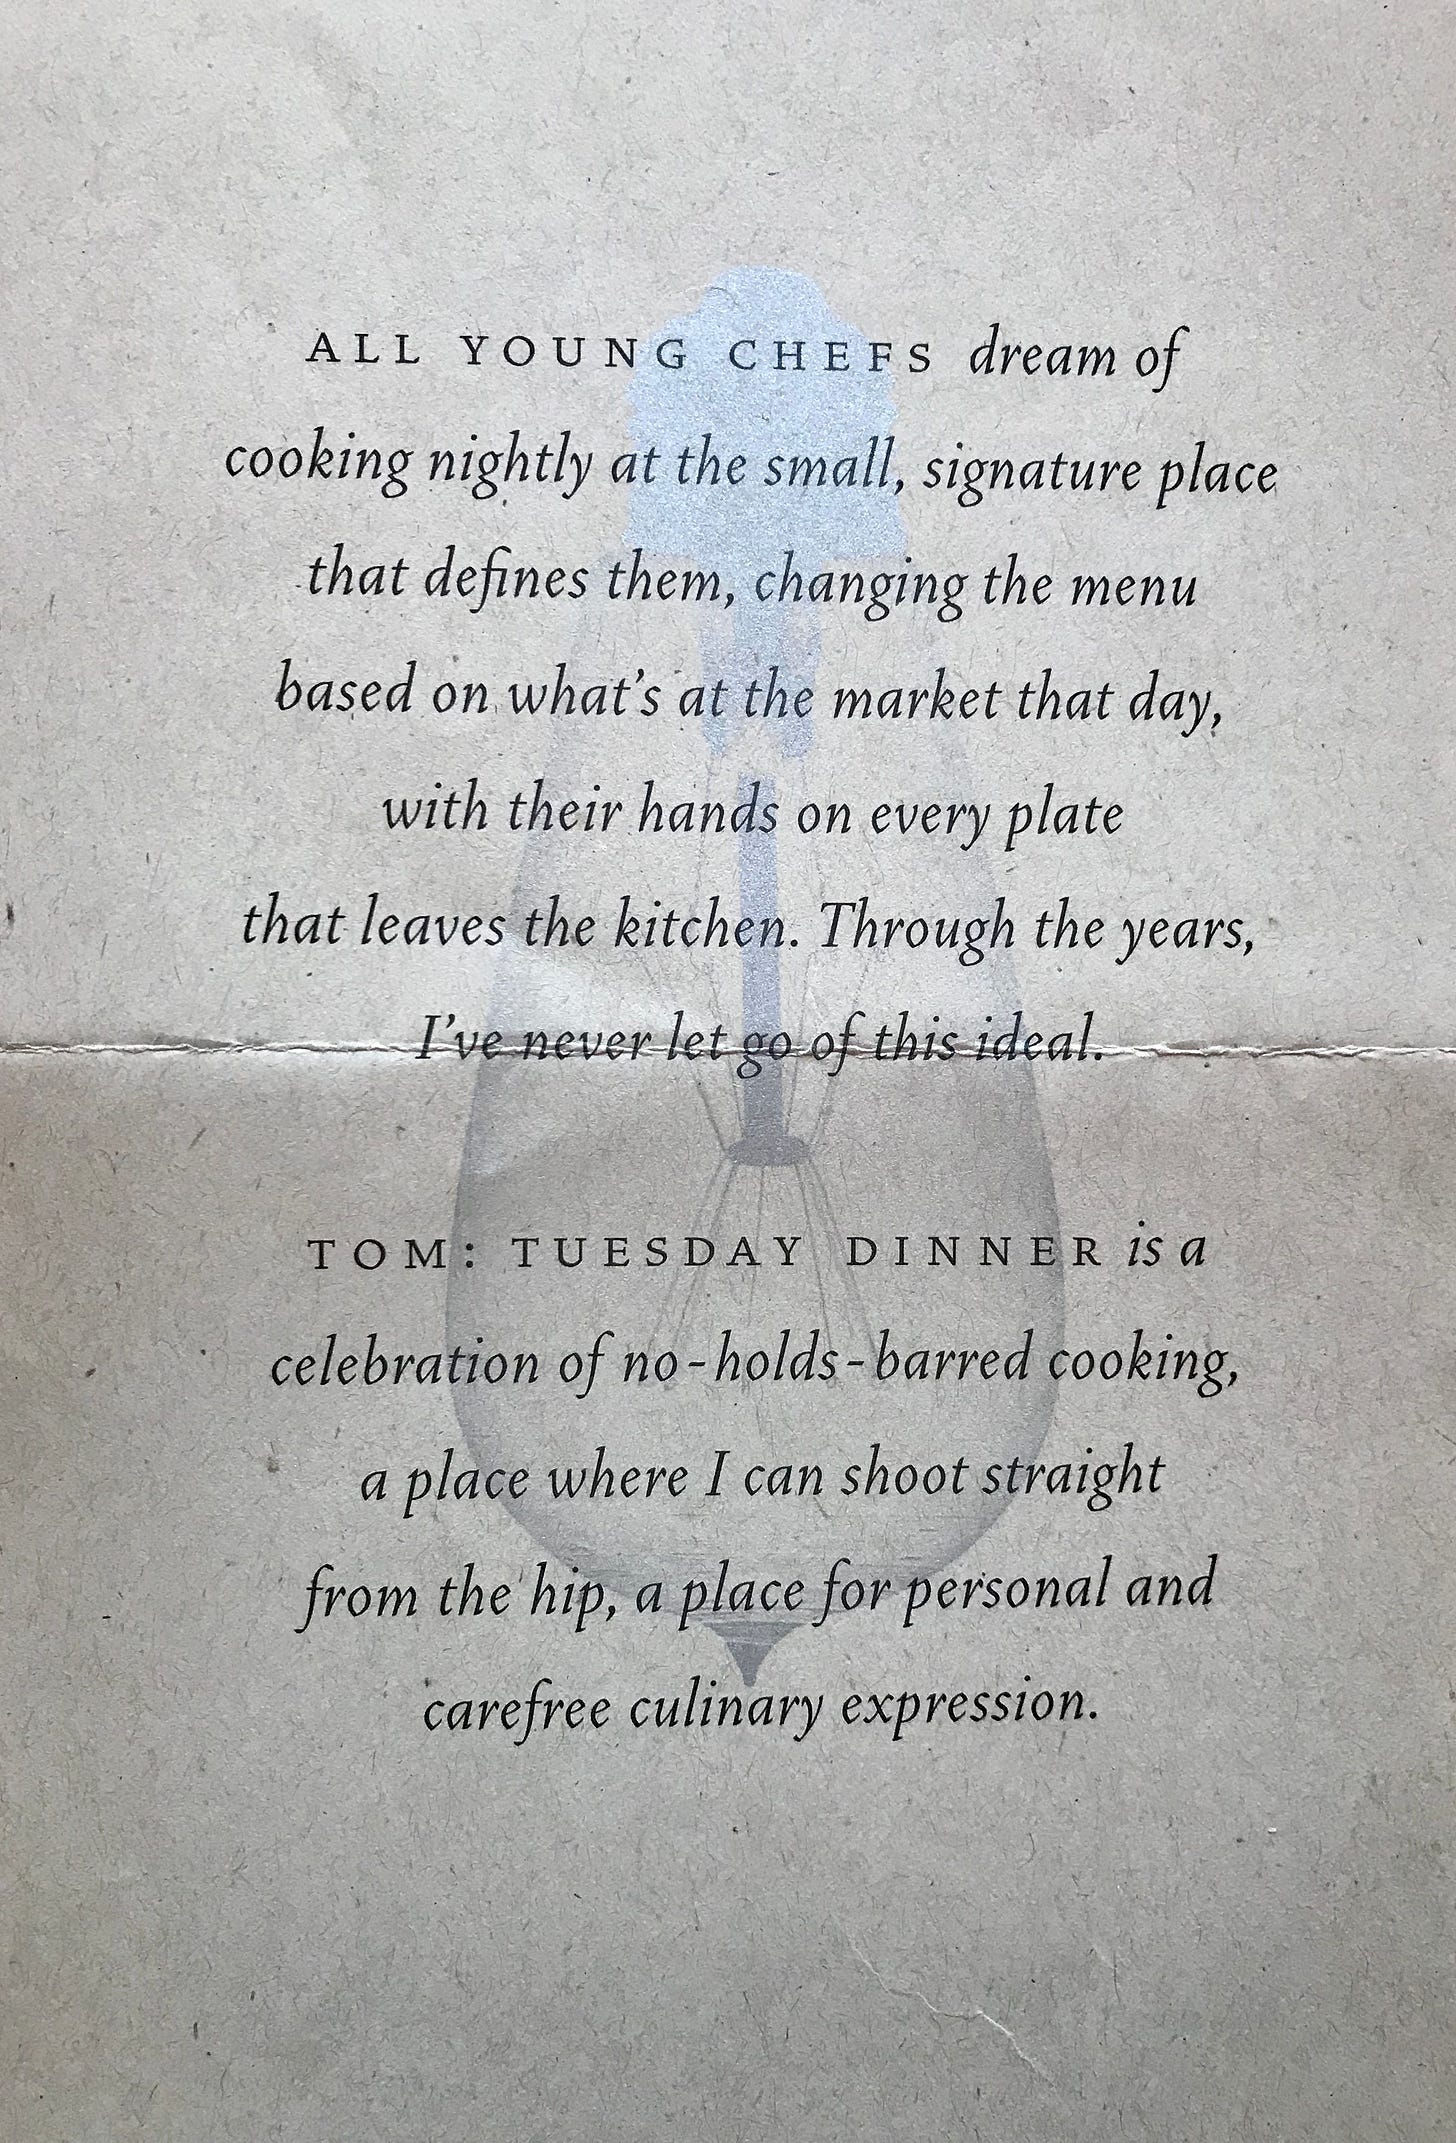 ALL YOUNG CHEFS dream of
cooking nightly at the small, signature place
that defines them, changing the menu
based on what’s at the market that day,
with their hands on every plate
that leaves the kitchen. Through the years,
I’ve never let go of this ideal.
TOM: TUESDAY DINNER is a
celebration of no-holds-barred cooking,
a place where I can shoot straight
from the hip, a place for personal and
carefree culinary expression.